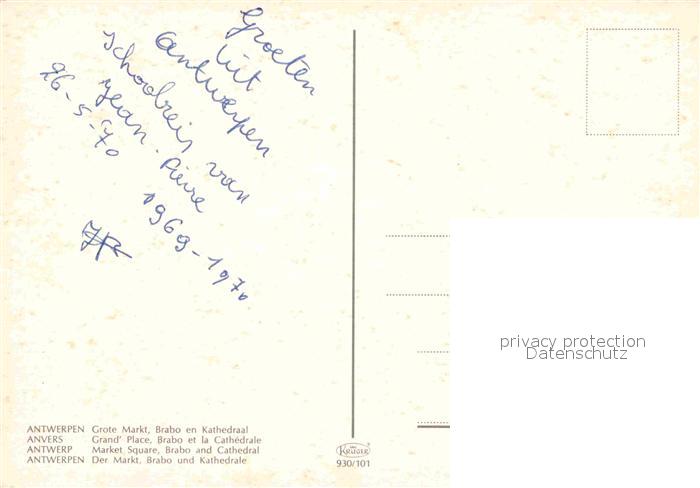 Groeten
uit
Antwerpen
schoolreis van
Jean-Pierre
1969-1970
26-5-70
ANTWERPEN Grote Markt, Brabo en Kathedraal
ANVERS Grand' Place, Brabo et la Cathédrale
ANTWERP Market Square, Brabo and Cathedral
ANTWERPEN Der Markt, Brabo und Kathedrale
KRÜGER
930/101
privacy protection
Datenschutz